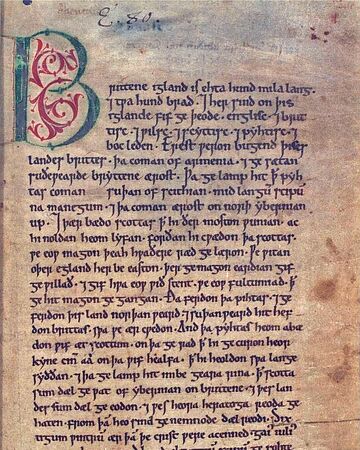 E. 80.
Brittene igland is ehta hund mila lang.
⁊ twa hund brad. ⁊ her sind on þis
iglande fif geþeode. englisc. ⁊ brit
tisc. ⁊ wilsc. ⁊ scyttisc. ⁊ pyhtisc. ⁊
boc leden. Erest weron bugend þises
landes brittes. þa coman of armenia. ⁊ gesætan
suðewearde bryttene ærost. Þa gelamp hit ꝥ pyh
tas coman suþan of scithian. mid langū scipū
na manegum. ⁊ þa coman ærost on norþ ybernian
up. ⁊ þær bædo scottas ꝥ hi ðer moston wunian. ac
hi noldan heom lyfan. forðan hi cwædon þa scottas.
we eow magon þeah hwaðere ræd gelæron. We witan
oþer egland her be easton. þer gemagon eardian gif
ge willað. ⁊ gif hwa eow wið stent. we eow fultumiað. ꝥ
ge hit magon gegangan. Ða ferdon þa pihtas. ⁊ ge
ferdon þis land norþanweard. ⁊ suþanweard hit hef
don brittas. swa we ær cwedon. And þa pyhtas heom abæ
don wif æt scottum. on þa gerad ꝥ hi gecuron heora
kyne cinn aa on þa wif healfa. ꝥ hi heoldon swa lange
syððan. ⁊ þa gelamp hit imbe geara rina. ꝥ scotta
sum dæl gewat of ybernian on brittene. ⁊ þes lan
des sum dæl geeodon. ⁊ wes heora heratoga reoda ge
haten. From þā heo sind genemnode dæl reodi. Six
tigum wintrū ær þā þe crist were acenned. gaiꝰ iuliꝰ